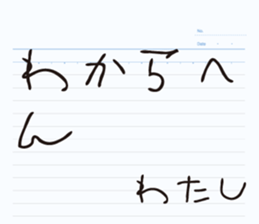 No.
Date
わからへ
ん
わたし